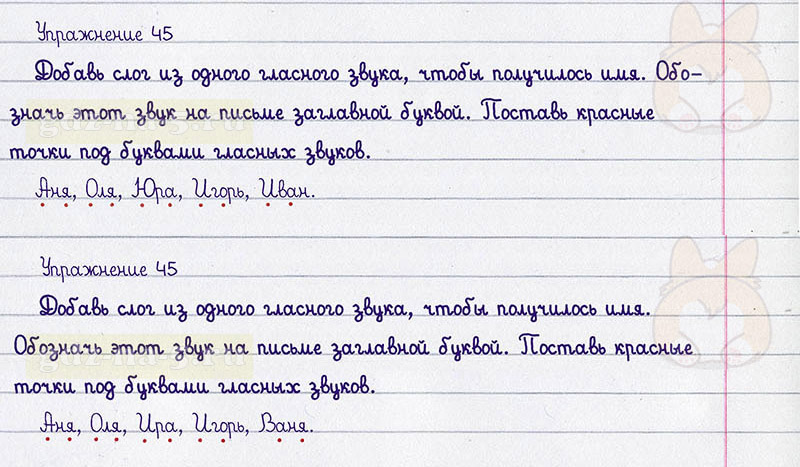 Упражнение 45
Добавь слог из одного гласного звука, чтобы получилось имя. Обо-
значь этот звук на письме заглавной буквой. Поставь красные
точки под буквами гласных звуков.
Аня, Оля, Юра, Игорь, Иван.
Упражнение 45
Добавь слог из одного гласного звука, чтобы получилось имя.
Обозначь этот звук на письме заглавной буквой. Поставь красные
точки под буквами гласных звуков.
Аня, Оля, Ира, Игорь, Ваня.